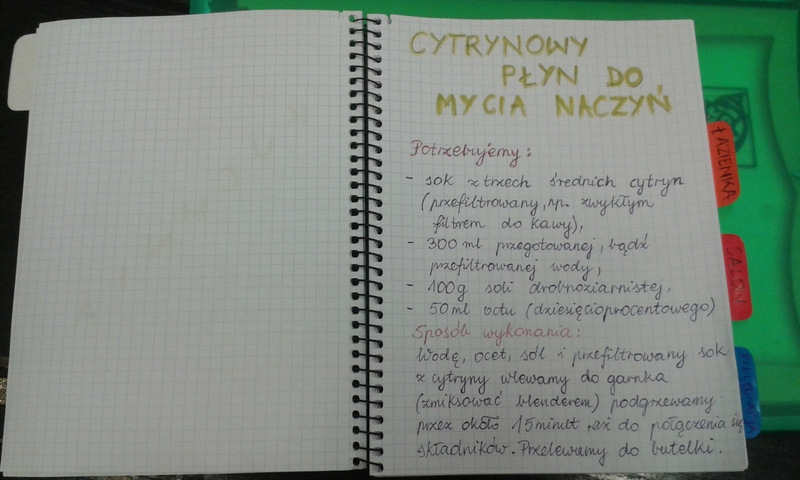 CYTRYNOWY
PŁYN DO
MYCIA NACZYŃ
Potrzebujemy:
- sok z trzech średnich cytryn
(przefiltrowany, np. zwykłym
filtrem do kawy),
- 300 ml przegotowanej, bądź
przefiltrowanej wody,
- 100g soli drobnoziarnistej,
- 50 ml octu (dziesięcioprocentowego)
Sposób wykonania:
Wodę, ocet, sól i przefiltrowany sok
z cytryny wlewamy do garnka
(zmiksować blenderem) podgrzewamy
przez około 15 minut, aż do połączenia się
składników. Przelewamy do butelki.
ŁAZIENKA
SALON